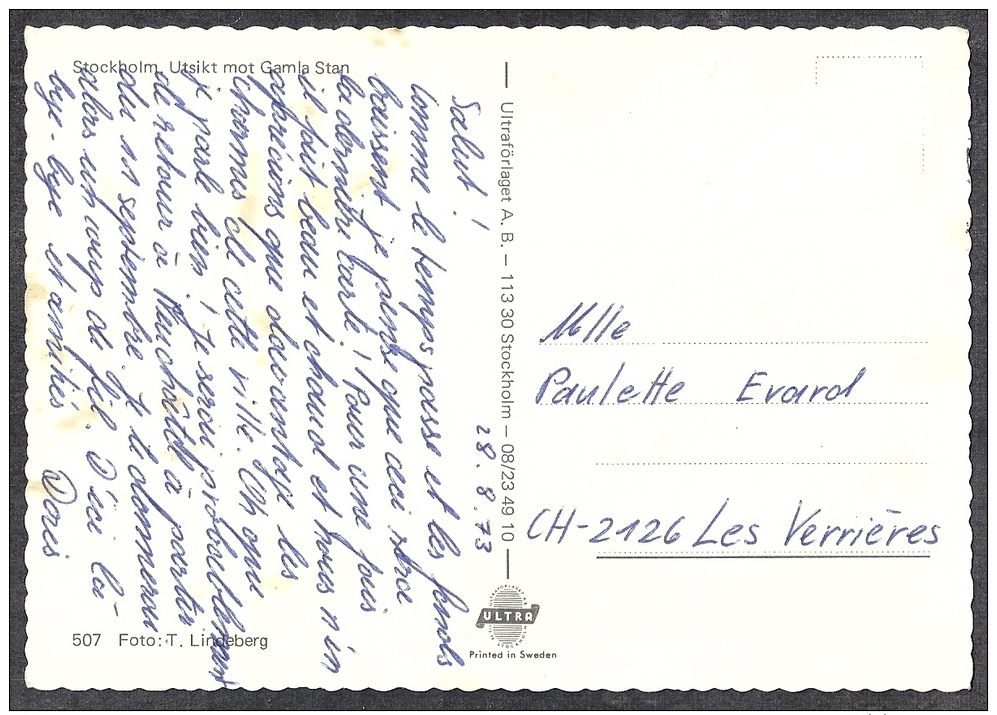 Stockholm, Utsikt mot Gamla Stan
28.8.73
Salut !
Comme le temps passe et les fonds
baissent je pense que ceci
la dernière carte ! Pour une fois
il fait beau et chaud et nous n'en
apprécions que davantage les
charmes de cette ville. Oh que
je parle bien ! Je serai probablement
de retour à Neuchâtel à partir
du 11 septembre. Je te donnerai
alors un coup de fil. D'ici là -
bye-bye et amitiés Doris
507 Foto: T. Lindeberg
Ultraförlaget A. B. – 113 30 Stockholm – 08/23 49 10
ULTRA
Printed in Sweden
Mlle
Paulette Evard
CH-2126 Les Verrières